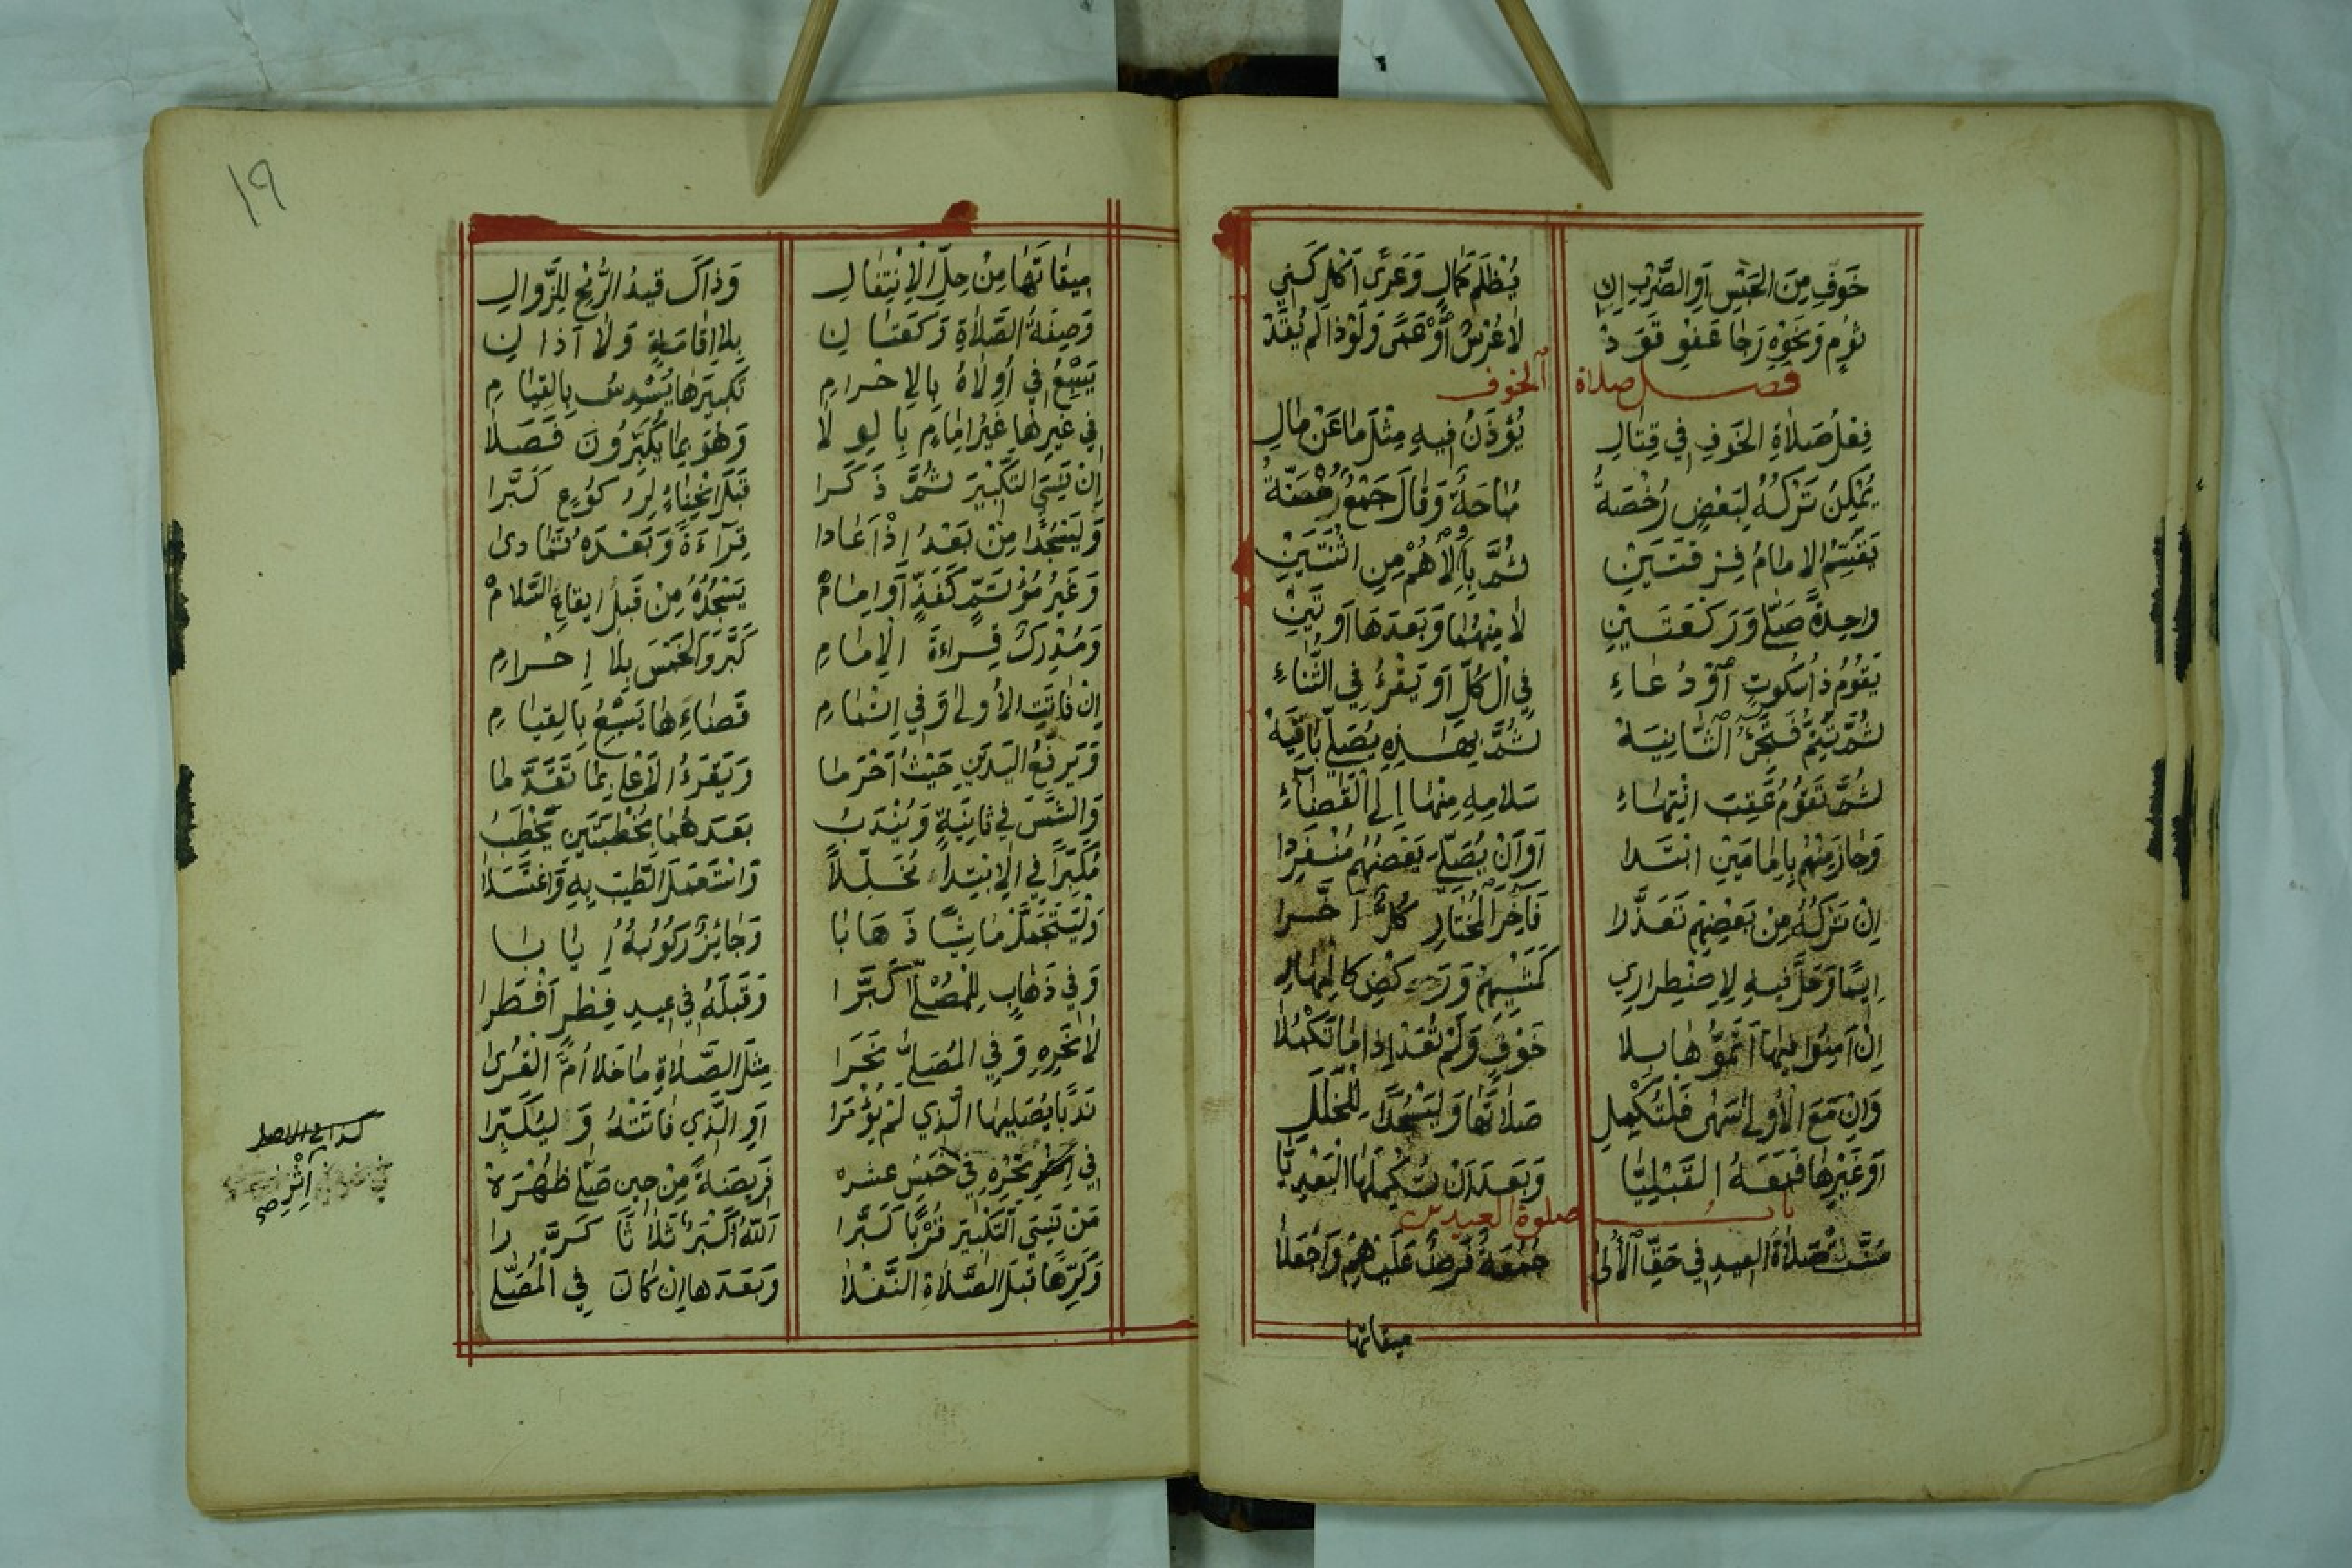 خَوْفٍ مِنَ الحَبْسِ أَوِ الضَّرْبِ إِنِ يُظْلَمْ كَمَالٍ وَعَرًى أَكْلٍ كَنِي
ثُومٍ وَنَحْوِهِ رَجَا عَفْوِ قَوَدْ لَا عُرْسٌ أَوْ عَمًى وَلَوْ ذَا لَمْ يُقَدْ
فصل صلاة الخوف
فِعْلُ صَلَاةِ الخَوْفِ فِي قِتَالِ يُؤْذَنُ فِيهِ مِثْلَ مَا عَنْ مَالِ
يُمْكِنُ تَرْكُهُ لِبَعْضٍ رُخْصَةُ مُبَاحَةٌ وَقَالَ جَمْعٌ رُخْصَةُ
يَقْسِمُ الإِمَامُ فِرْقَتَيْنِ ثُمَّ بِأُولَاهُمْ مِنِ اثْنَتَيْنِ
وَاحِدَةً صَلَّى وَرَكْعَتَيْنِ لَا مِنْهُمَا وَبَعْدَهَا أَوْ تَيْنِ
يَقُومُ ذَا سُكُوتٍ أَوْ دُعَاءِ فِي الْكُلِّ أَوْ يَقْرَءُ فِي الثُّنَاءِ
ثُمَّ تُتِمُّ فَتَجِيْ الثَّانِيَةْ ثُمَّ بِهَذِهِ يُصَلِّي بَاقِيَةْ
ثُمَّ تَقُومُ عَقِبَ انْتِهَاءِ سَلَامِهِ مِنْهَا إِلَى القَضَاءِ
وَجَازَ مِنْهُمْ بِإِمَامَيْنِ ابْتَدَا أَوْ أَنْ يُصَلِّيَ بَعْضُهُمْ مُنْفَرِدَا
إِنْ تَرْكُهُ مِنْ بَعْضِهِمْ تَعَذَّرَا فَآخِرَ المُخْتَارِ كُلٌّ أَخَّرَا
إِيمًا وَحَلَّ فِيهِ لِاضْطِرَارِ كَمَشْيِهِمْ وَرَكْضٍ كَالْجِهَارِ
إِنْ أَمِنُوا فِيهَا أَتَمُّوهَا بِلَا خَوْفٍ وَلَمْ تُعَدْ إِذَا مَا تَكْمُلَا
وَإِنْ مَعَ الأُولَى سَهَى فَلْتُكْمِلِ صَلَاتَهَا وَلْيَسْجُدَا لِلْخَلَلِ
أَوْ غَيْرِهَا فَمَعَهُ القَبْلِيَّا وَبَعْدَ أَنْ تُكْمِلَهَا البَعْدِيَّا
باب صلوة العيدين
سُنَّتْ صَلَاةُ العِيدِ فِي حَقِّ الأُلَى جُمْعَةٌ فَرْضٌ عَلَيْهِمُ وَاجْعَلَا
ميقاتها
١٩
مِيقَاتَهَا مِنْ حِلِّ الِانْتِفَالِ وَذَاكَ قِيدُ الرُّمْحِ لِلزَّوَالِ
وَصِفَةُ الصَّلَاةِ رَكْعَتَانِ بِلَا إِقَامَةٍ وَلَا أَذَانِ
يَسْبَعُ فِي أُولَاهُ بِالإِحْرَامِ تَكْبِيرَهَا يُسْدِسُ بِالقِيَامِ
فِي غَيْرِهَا غَيْرُ إِمَامٍ بِالوِلَا وَهْوَ بِمَا يُكَبِّرُونَ فَصَلَا
إِنْ يَنْسَى التَّكْبِيرَ ثُمَّ ذَكَرَا قَبْلَ انْحِنَاءٍ لِرُكُوعٍ كَبَّرَا
وَلْيَسْجُدًا مِنْ بَعْدُ إِذْ أَعَادَا قِرَآءَةً وَبَعْدَهُ تَمَادَى
وَغَيْرُ مُؤْتَمٍّ كَفَذٍّ أَوْ إِمَامْ يَسْجُدُهُ مِنْ قَبْلِ إِيقَاعِ السَّلَامْ
وَمُدْرِكٌ قِرَاءَةَ الإِمَامِ كَبَّرَ وَالخَمْسَ بِلَا إِحْرَامِ
إِنْ فَاتَتِ الأُولَى وَفِي إِتْمَامِ قَضَاءَهَا يَسْبَعُ بِالقِيَامِ
وَيَرْفَعُ اليَدَيْنِ حَيْثُ أَحْرَمَا وَيَقْرَءُ الأَعْلَى بِمَا تَقَدَّمَا
وَالشَّمْسَ فِي ثَانِيَةٍ وَيُنْدَبُ بَعْدَهُمَا بِخُطْبَتَيْنِ يَخْطُبُ
مُكَبِّرًا فِي الِابْتِدَا مُخَلِّلَا وَاسْتَعْمَلَ الطِّيبَ بِهِ وَاغْتَسَلَا
وَلْيَسْتَحِلَّ مَاشِيًا ذَهَابَا وَجَائِزٌ رُكُوبُهُ إِيَابَا
وَفِي ذَهَابٍ لِلْمُصَلَّى كَبَّرَا وَقَبْلَهُ فِي عِيدِ فِطْرٍ أَفْطَرَا
لَا نَحْرِهِ وَفِي المُصَلَّى نَحَرَا مِثْلَ الصَّلَاةِ مَا خَلَا أُمَّ القُرَى
نَدْبًا يُصَلِّيهَا الَّذِي لَمْ يُؤْمَرَا أَوِ الَّذِي فَاتَتْهُ وَلْيُكَبِّرَا
فِي نَحْرِهِ فِي خَمْسِ عَشْرَهْ فَرِيضَةً مِنْ حِينِ صَلَّى ظُهْرَهْ
مَنْ يَنْسَى التَّكْبِيرَ قُرْبًا كَبَّرَا اَللهُ أَكْبَرُ ثَلَاثًا كَرَّرَا
وَكَرِّهَا قَبْلَ الصَّلَاةِ النَّفْلَا وَبَعْدَهَا إِنْ كَانَ فِي الْمُصَلَّى
كذا في الاصل
إِثْرِ صح